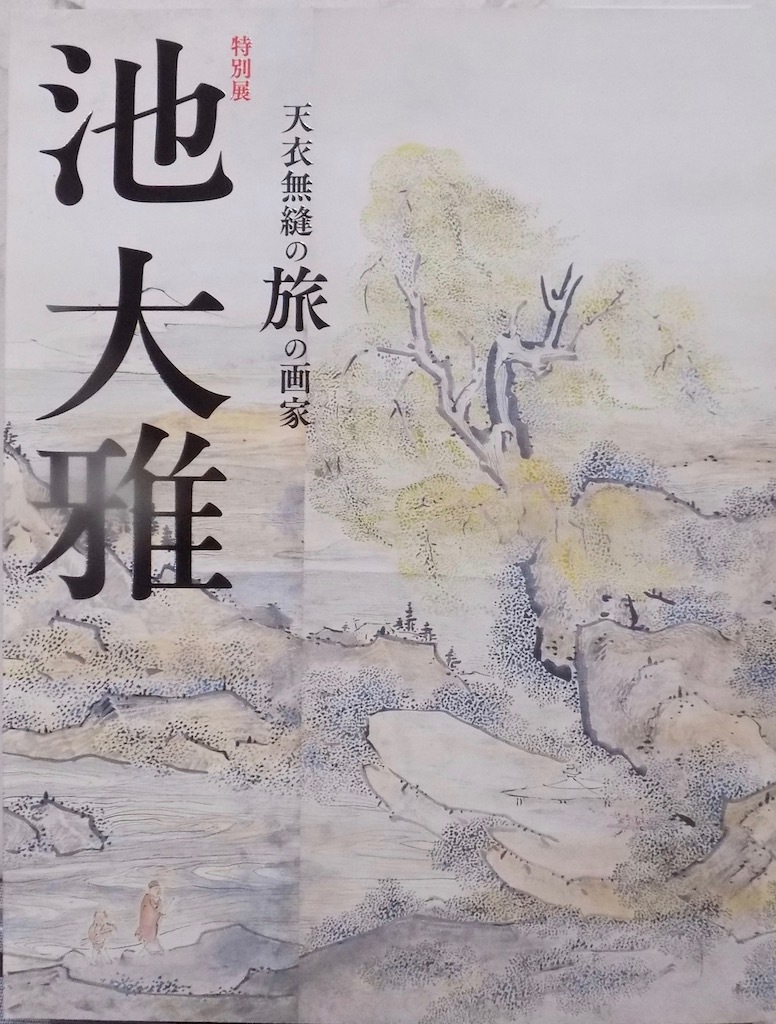 特別展
池大雅
天衣無縫の旅の画家